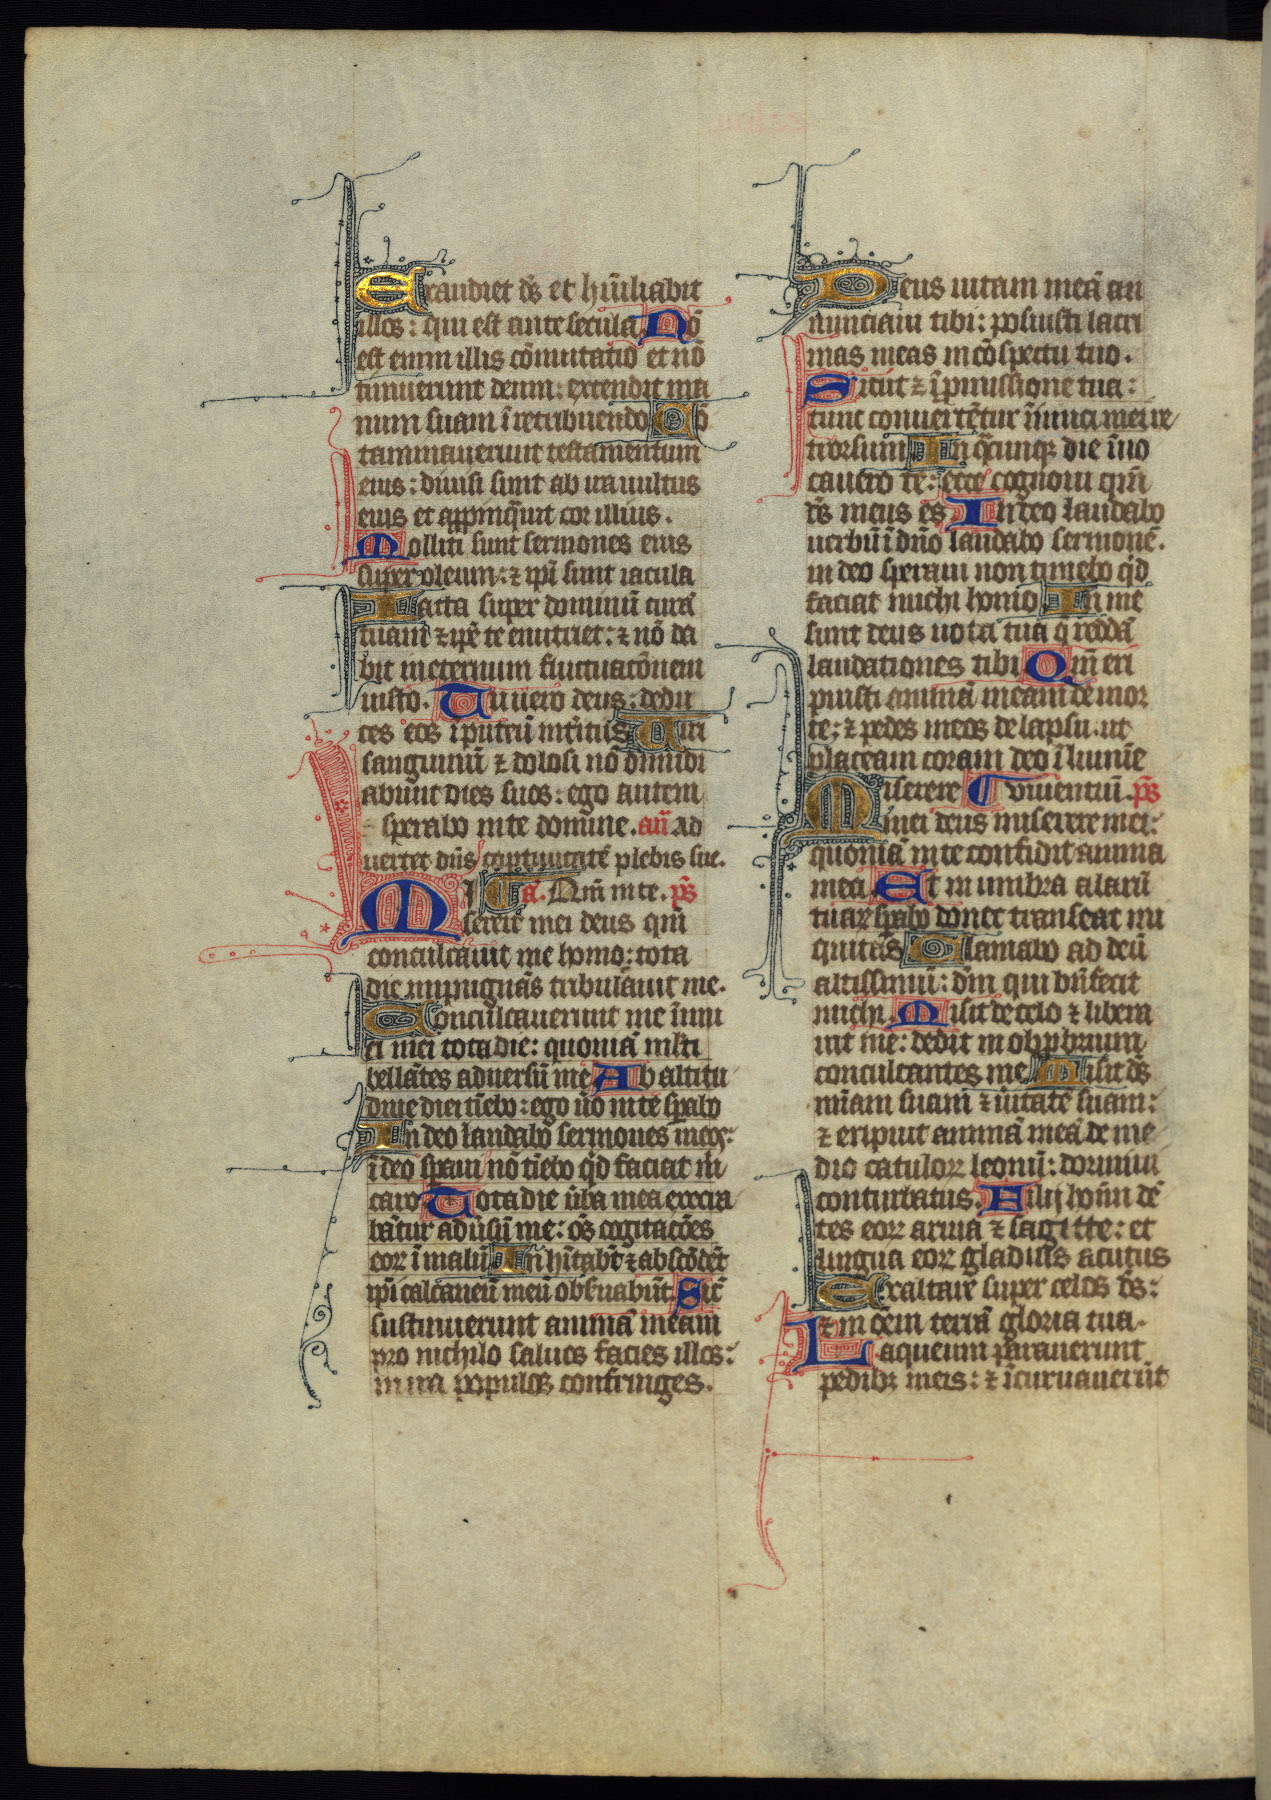 Exaudiet ds̄ et hūiliabit
illos: qui est ante secula. Nō
est enim illis cōmutatio et nō
timuerunt deum: extendit ma
num suam ī retribuendo Cō
taminauerunt testamentum
eius: diuisi sunt ab ira uultus
eius et appīnq̄uit cor illius.
Molliti sunt sermones eius
super oleum: ⁊ ipī sunt iacula
Iacta super dominū curā
tuam ⁊ ip̄e te enutriet: ⁊ nō da
bit in eternum fluctuatōnem
iusto. Tu uero deus: dedu
ces eos ī puteū intitus Uiri
sanguinū ⁊ dolosi nō dimidi
abunt dies suos: ego autem
sperabo in te domine. an̄ ad
uertet dn̄s captiuitatē plebis sue.
I C a. Nm̄ in te. ps̄
Miserere mei deus qm̄
conculcauit me homo: tota
die inpugnās tribulauit me.
Conculcauerunt me inimi
ci mei tota die: quoniā m̄lti
bellātes aduersū me Ab altitu
dine diei tīebo: ego ūo in te sp̄abo
In deo laudabo sermones meos:
ī deo sp̄aui nō tīebo qd̄ faciat m̄
caro Tota die ūba mea execra
bātur aduīsū me: oēs cogitatōes
eorꝝ ī malū In hītabt̄ ⁊ abscōdēt
ipī calcaneū meū obseruabūt Sic̄
sustinuerunt animā meam
pro nichilo saluos facies illos:
in ira populos confringes.
Deus uitam meā an
nunciaui tibi: posuisti lacri
mas meas in cōspectu tuo.
Sicut ⁊ ī pmissione tua:
tunc conuertētur īnimici mei re
trorsum In q̄cunqꝫ die īuo
cauero te: ecce cognoui qm̄
ds̄ meus es In deo laudabo
uerbū ī dn̄o laudabo sermonē.
in deo speraui non timebo qd̄
faciat michi homo In me
sunt deus uota tua q̄ reddā
laudationes tibi Qm̄ eri
puisti animā meam de mor
te: ⁊ pedes meos de lapsu: ut
placeam coram deo ī lumīe
Miserere C viuentiū. ps̄
mei deus miserere mei:
quoniā in te confidit anima
mea. Et in umbra alarū
tuarꝝ sp̄abo donec transeat ini
quitas Clamabo ad deū
altissimū: dm̄ qui bn̄fecit
michi. Misit de celo ⁊ libera
uit me: dedit in obphrium
conculcantes me. Misit ds̄
mīam suam ⁊ ūitatē suam:
⁊ eripuit animā meā de me
dio catulorꝝ leonū: dormiui
conturbatus. Filij hoīm dē
tes eorꝝ arma ⁊ sagitte: et
lingua eorꝝ gladius acutus
Exaltare super celos ds̄:
⁊ in oēm terrā gloria tua.
Laqueum parauerunt
pedibꝫ meis: ⁊ īcuruauerūt